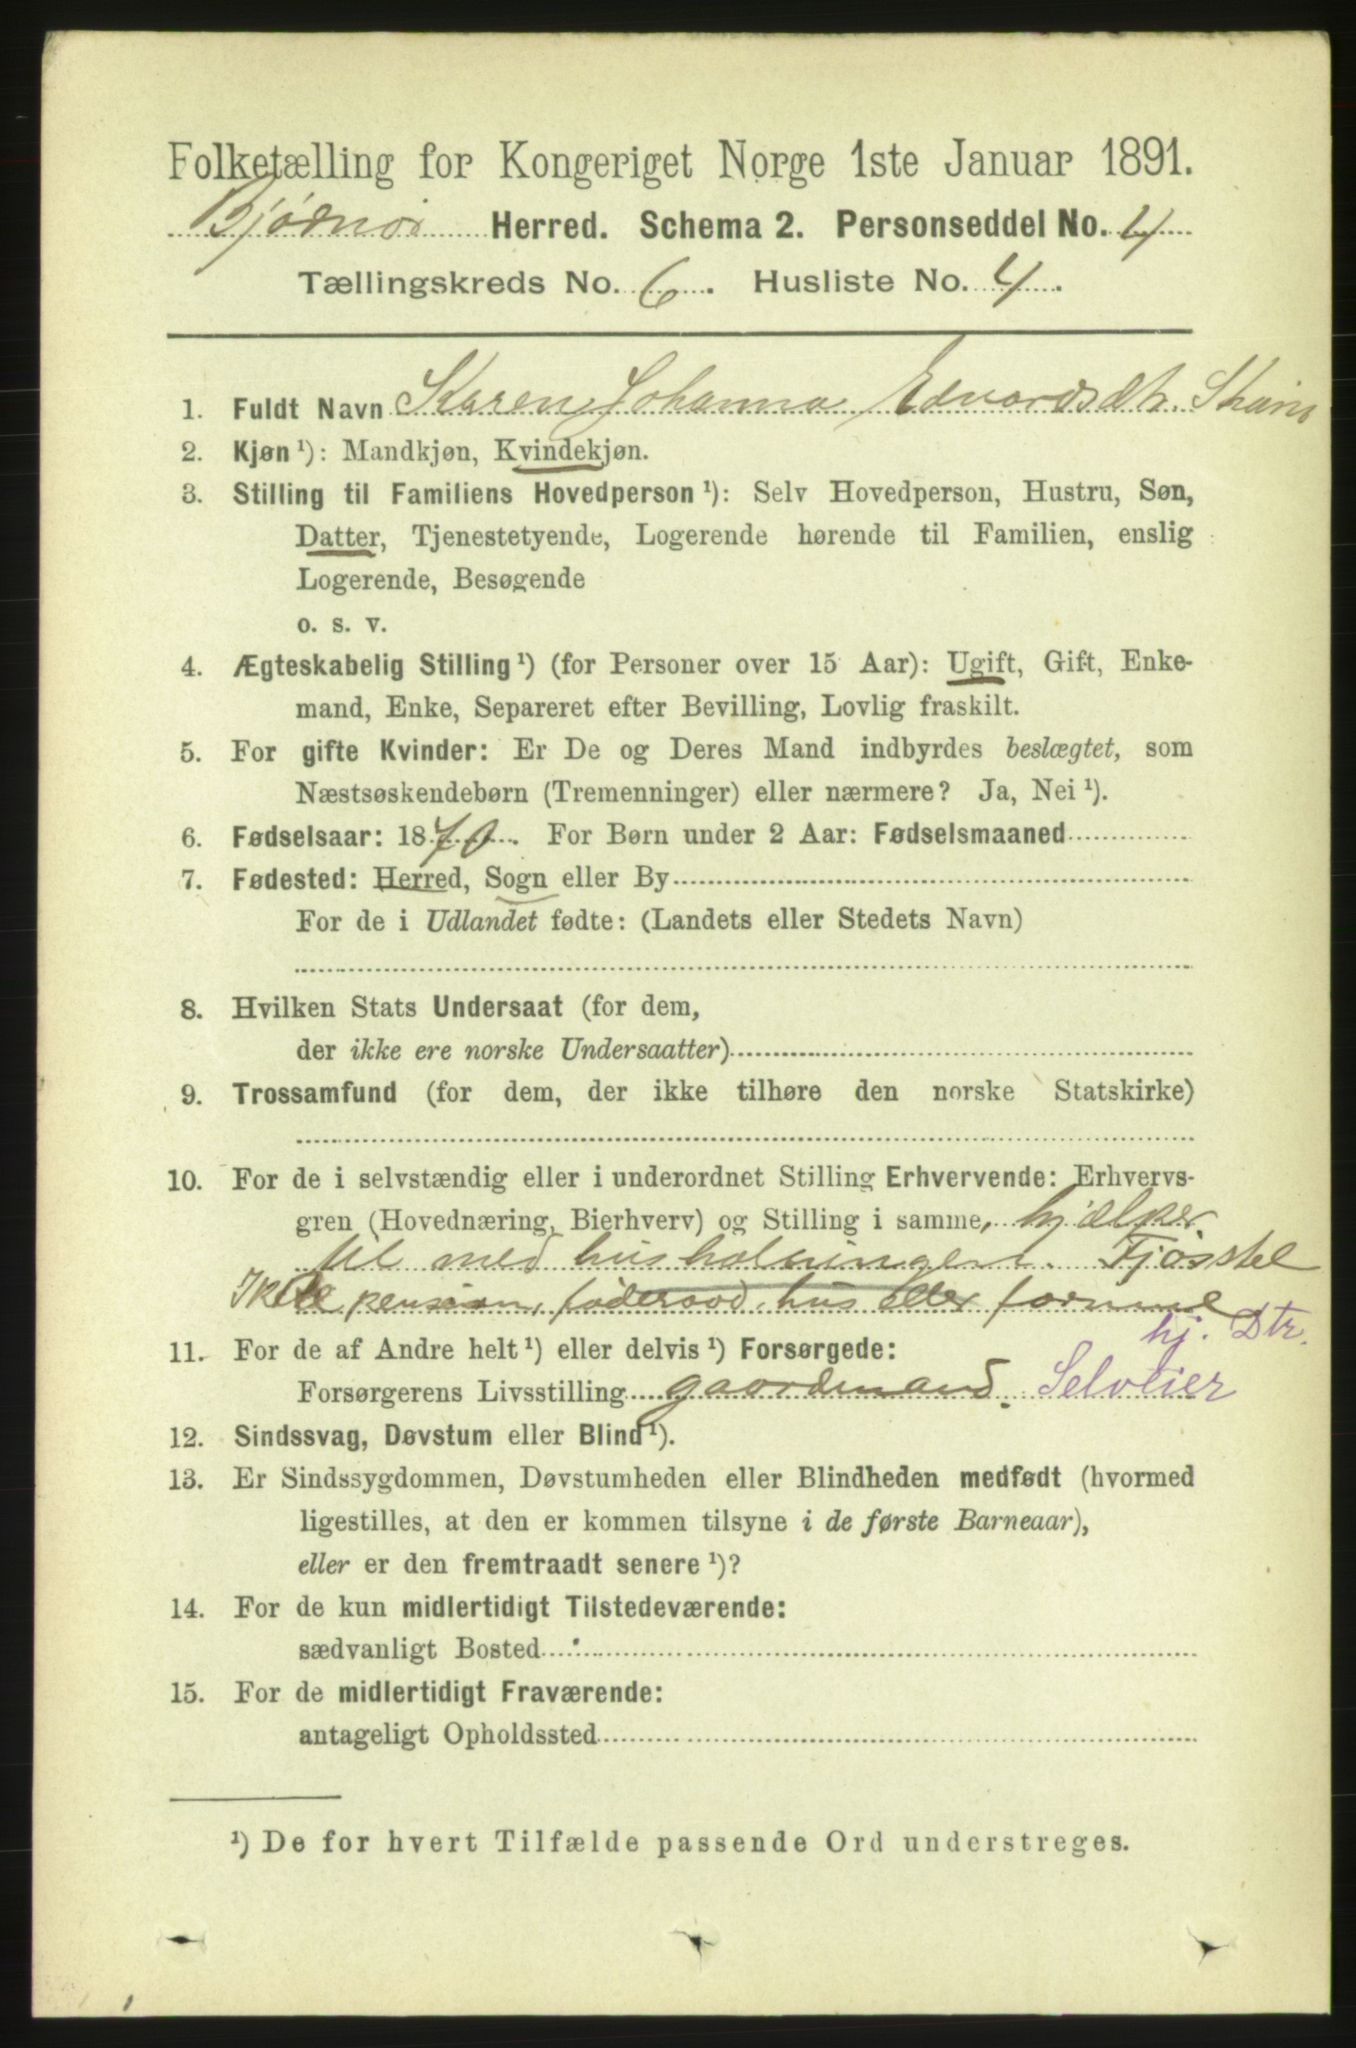 Folketælling for Kongeriget Norge 1ste Januar 1891.
Bjørnør Herred. Schema 2. Personseddel No. 4
Tællingskreds No. 6. Husliste No. 4.
1. Fuldt Navn Karen Johanna Edvardsdtr.
2. Kjøn ¹): Mandkjøn, Kvindekjøn.
3. Stilling til Familiens Hovedperson ¹): Selv Hovedperson, Hustru, Søn,
Datter, Tjenestetyende, Logerende hørende til Familien, enslig
Logerende, Besøgende
o. s. v.
4. Ægteskabelig Stilling ¹) (for Personer over 15 Aar): Ugift, Gift, Enke-
mand, Enke, Separeret efter Bevilling, Lovlig fraskilt.
5. For gifte Kvinder: Er De og Deres Mand indbyrdes beslægtet, som
Næstsøskendebørn (Tremenninger) eller nærmere? Ja, Nei ¹).
6. Fødselsaar: 1870. For Børn under 2 Aar: Fødselsmaaned
7. Fødested: Herred, Sogn eller By
For de i Udlandet fødte: (Landets eller Stedets Navn)
8. Hvilken Stats Undersaat (for dem,
der ikke ere norske Undersaatter)
9. Trossamfund (for dem, der ikke tilhøre den norske Statskirke)
10. For de i selvstændig eller i underordnet Stilling Erhvervende: Erhvervs-
gren (Hovednæring, Bierhverv) og Stilling i samme, hjælper
til med husholdningen. Fjøsstel
Ikke pension, føderaad, hus eller formue
hj. Dtr.
11. For de af Andre helt ¹) eller delvis ¹) Forsørgede:
Forsørgerens Livsstilling gaardmand. Selveier
12. Sindssvag, Døvstum eller Blind ¹).
13. Er Sindssygdommen, Døvstumheden eller Blindheden medfødt (hvormed
ligestilles, at den er kommen tilsyne i de første Barneaar),
eller er den fremtraadt senere ¹)?
14. For de kun midlertidigt Tilstedeværende:
sædvanligt Bosted
15. For de midlertidigt Fraværende:
antageligt Opholdssted
¹) De for hvert Tilfælde passende Ord understreges.